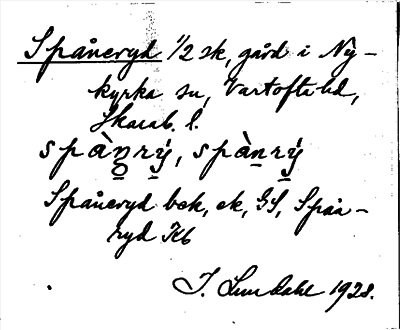 Spåneryd 1/2 sk, gård i Ny-
kyrka sn, Vartofta hd,
Skarab. l.
Spåneryd bek, ek, GS, Spåa-
ryd Kb
J. Lundahl 1928.